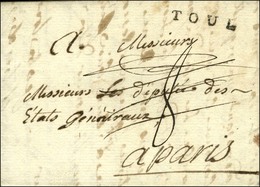 TOUL
A Messieurs
Messieurs les députés des
Etats généraux 8
a paris